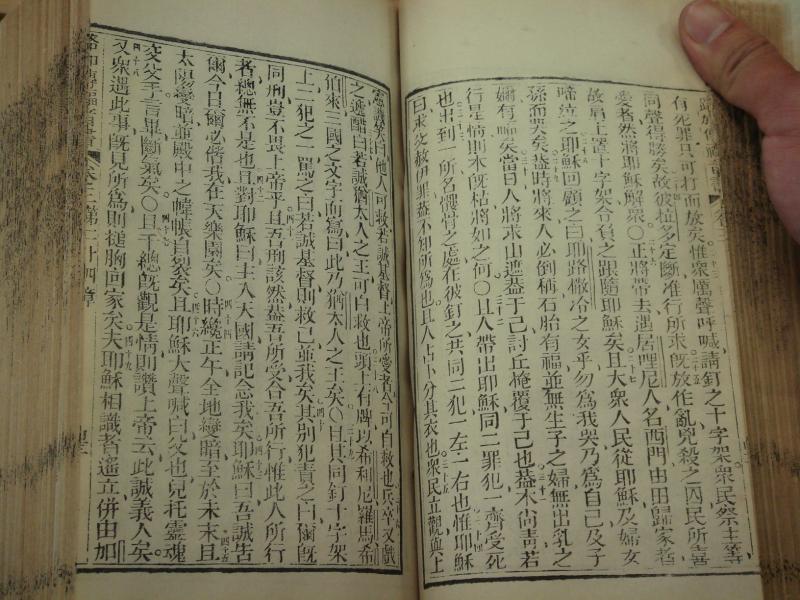 有死罪只可打而放矣惟衆厲聲呼喊請釘之十字架衆民祭主等
同聲得勝矣故彼拉多定斷准行所求旣放作亂兇殺之囚民所喜
愛者然將耶穌解衆〇正將帶去遇居哩尼人名西門由田歸家者
故肩上置十字架令負之跟隨耶穌矣且大衆人民從耶穌及婦女
啼泣之耶穌回顧之曰耶路撒冷之女乎勿爲我哭乃爲自己及子
孫而哭矣蓋時將來人必倒稱石胎有福並無生子之婦無出乳之
嬭有福矣當日人將求山遮蓋于己討丘掩覆于己也蓋木尙靑若
行是情則木旣枯將如之何〇且人帶出耶穌同二罪犯一齊受死
也出到一所名髑骨之處在彼釘之共同二犯一左一右也惟耶穌
曰求父赦伊罪蓋不知所爲也且人占卜分其衣也衆民立觀與上
憲譏笑曰他人可救若誠基督上帝所愛者今可自救也兵卒又戲
之遞醋曰若誠猶太人之王可自救也頭上有牌以希利尼羅馬希
伯來三國之文字而寫曰此乃猶太人之王矣〇且其同釘十字架
上二犯之一罵之曰若誠基督則救己並我矣其別犯責之曰爾旣
同刑豈不畏上帝乎且吾刑該然蓋吾所受合吾所行惟此人所行
者總無不是也且對耶穌曰主入天國請記念我矣耶穌曰吾誠告
爾今日爾必偕我在天樂園矣〇時纔正午全地變暗至於未末且
太陽變暗並殿中之幃帳自裂矣且耶穌大聲喊曰父也兒托靈魂
交父手言畢斷氣矣〇且千總旣觀是情則讚上帝云此誠義人矣
又衆遇此事旣見所爲則搥胸回家矣夫耶穌相識者遙立併由加
路加傳福音書 卷三第二十四章